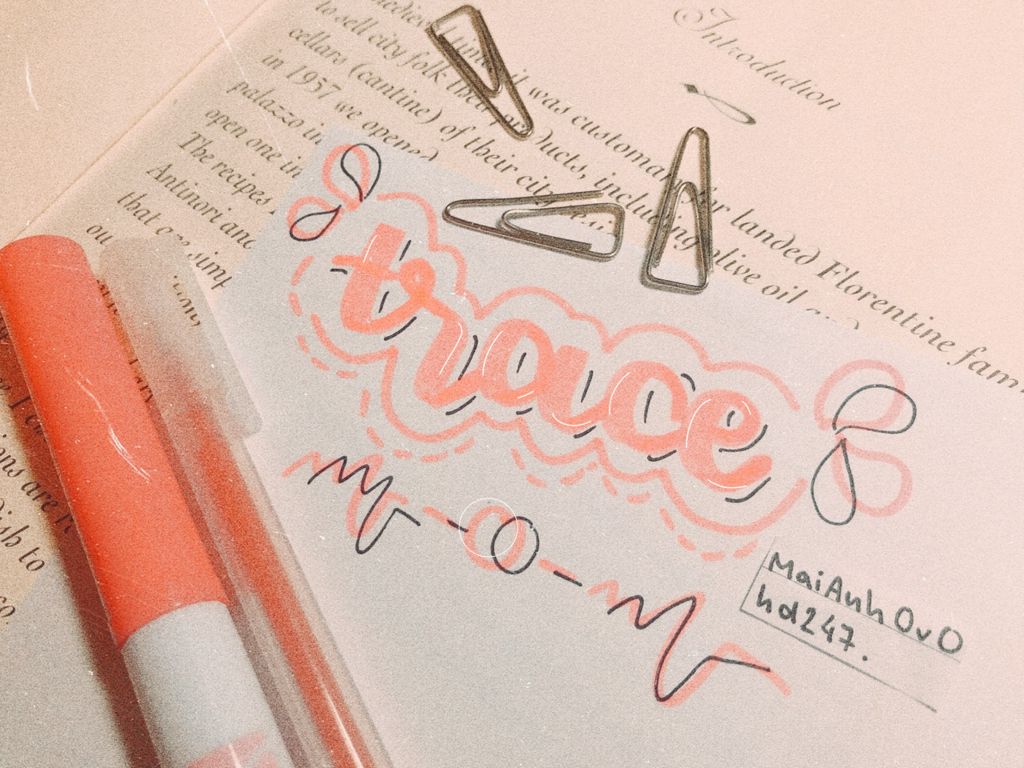 Introduction
medieval times it was customary for landed Florentine fam
to sell city folk their products, including olive oil and
cellars (cantine) of their city
in 1957 we opened
palazzo in
open one in
The recipes
Antinori and
that are simp
ou
trace
MaiAnhOvO
hd247.
ions are
ish to
co.